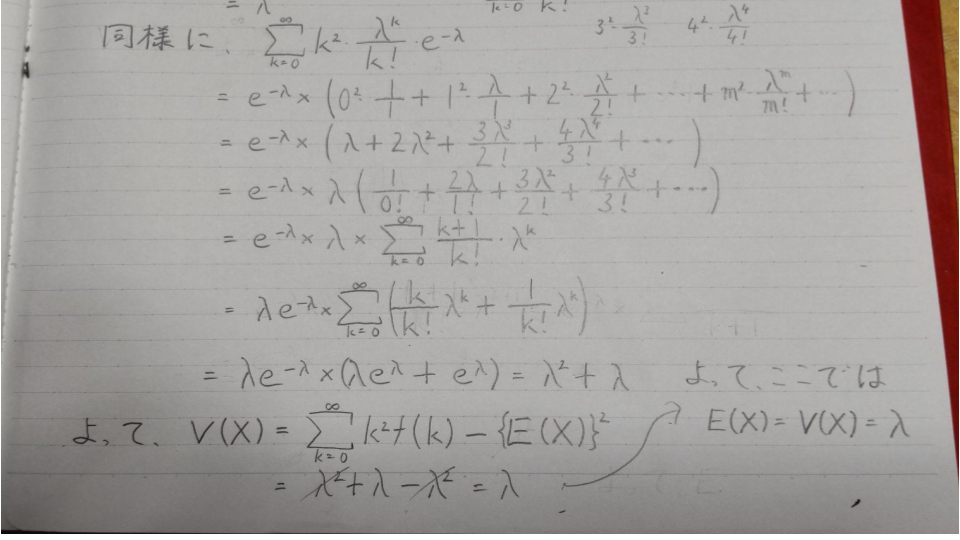 = λ
k=0 k!
同様に、 ∑_{k=0}^{∞} k²・λᵏ/k!・e^{-λ} 3²・λ³/3! 4²・λ⁴/4!
= e^{-λ} × (0²・1/1 + 1²・λ/1 + 2²・λ²/2! + … + m²・λᵐ/m! + …)
= e^{-λ} × (λ + 2λ² + 3λ³/2! + 4λ⁴/3! + …)
= e^{-λ} × λ (1/0! + 2λ/1! + 3λ²/2! + 4λ³/3! + …)
= e^{-λ} × λ × ∑_{k=0}^{∞} (k+1)/k!・λᵏ
= λe^{-λ} × ∑_{k=0}^{∞} (k/k! λᵏ + 1/k! λᵏ)
= λe^{-λ} × (λe^{λ} + e^{λ}) = λ² + λ よって、ここでは
よって、 V(X) = ∑_{k=0}^{∞} k²f(k) − {E(X)}² E(X) = V(X) = λ
= λ² + λ − λ² = λ